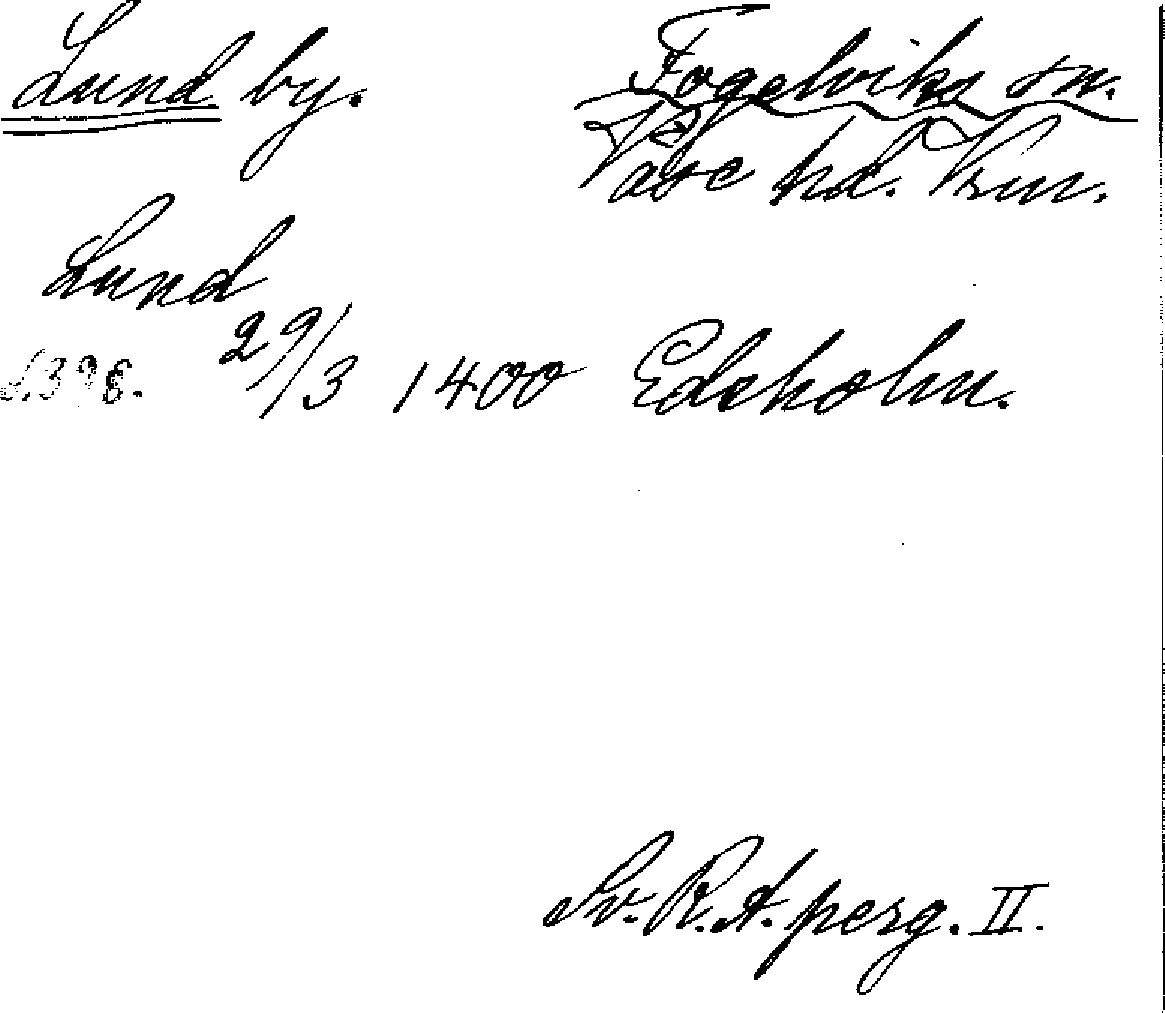 Lund by. Fogelviks sn.
Väse hd. Vrm.
Lund
S. 398. 29/3 1400 Edsholm.
Sv. R. A. perg. II.